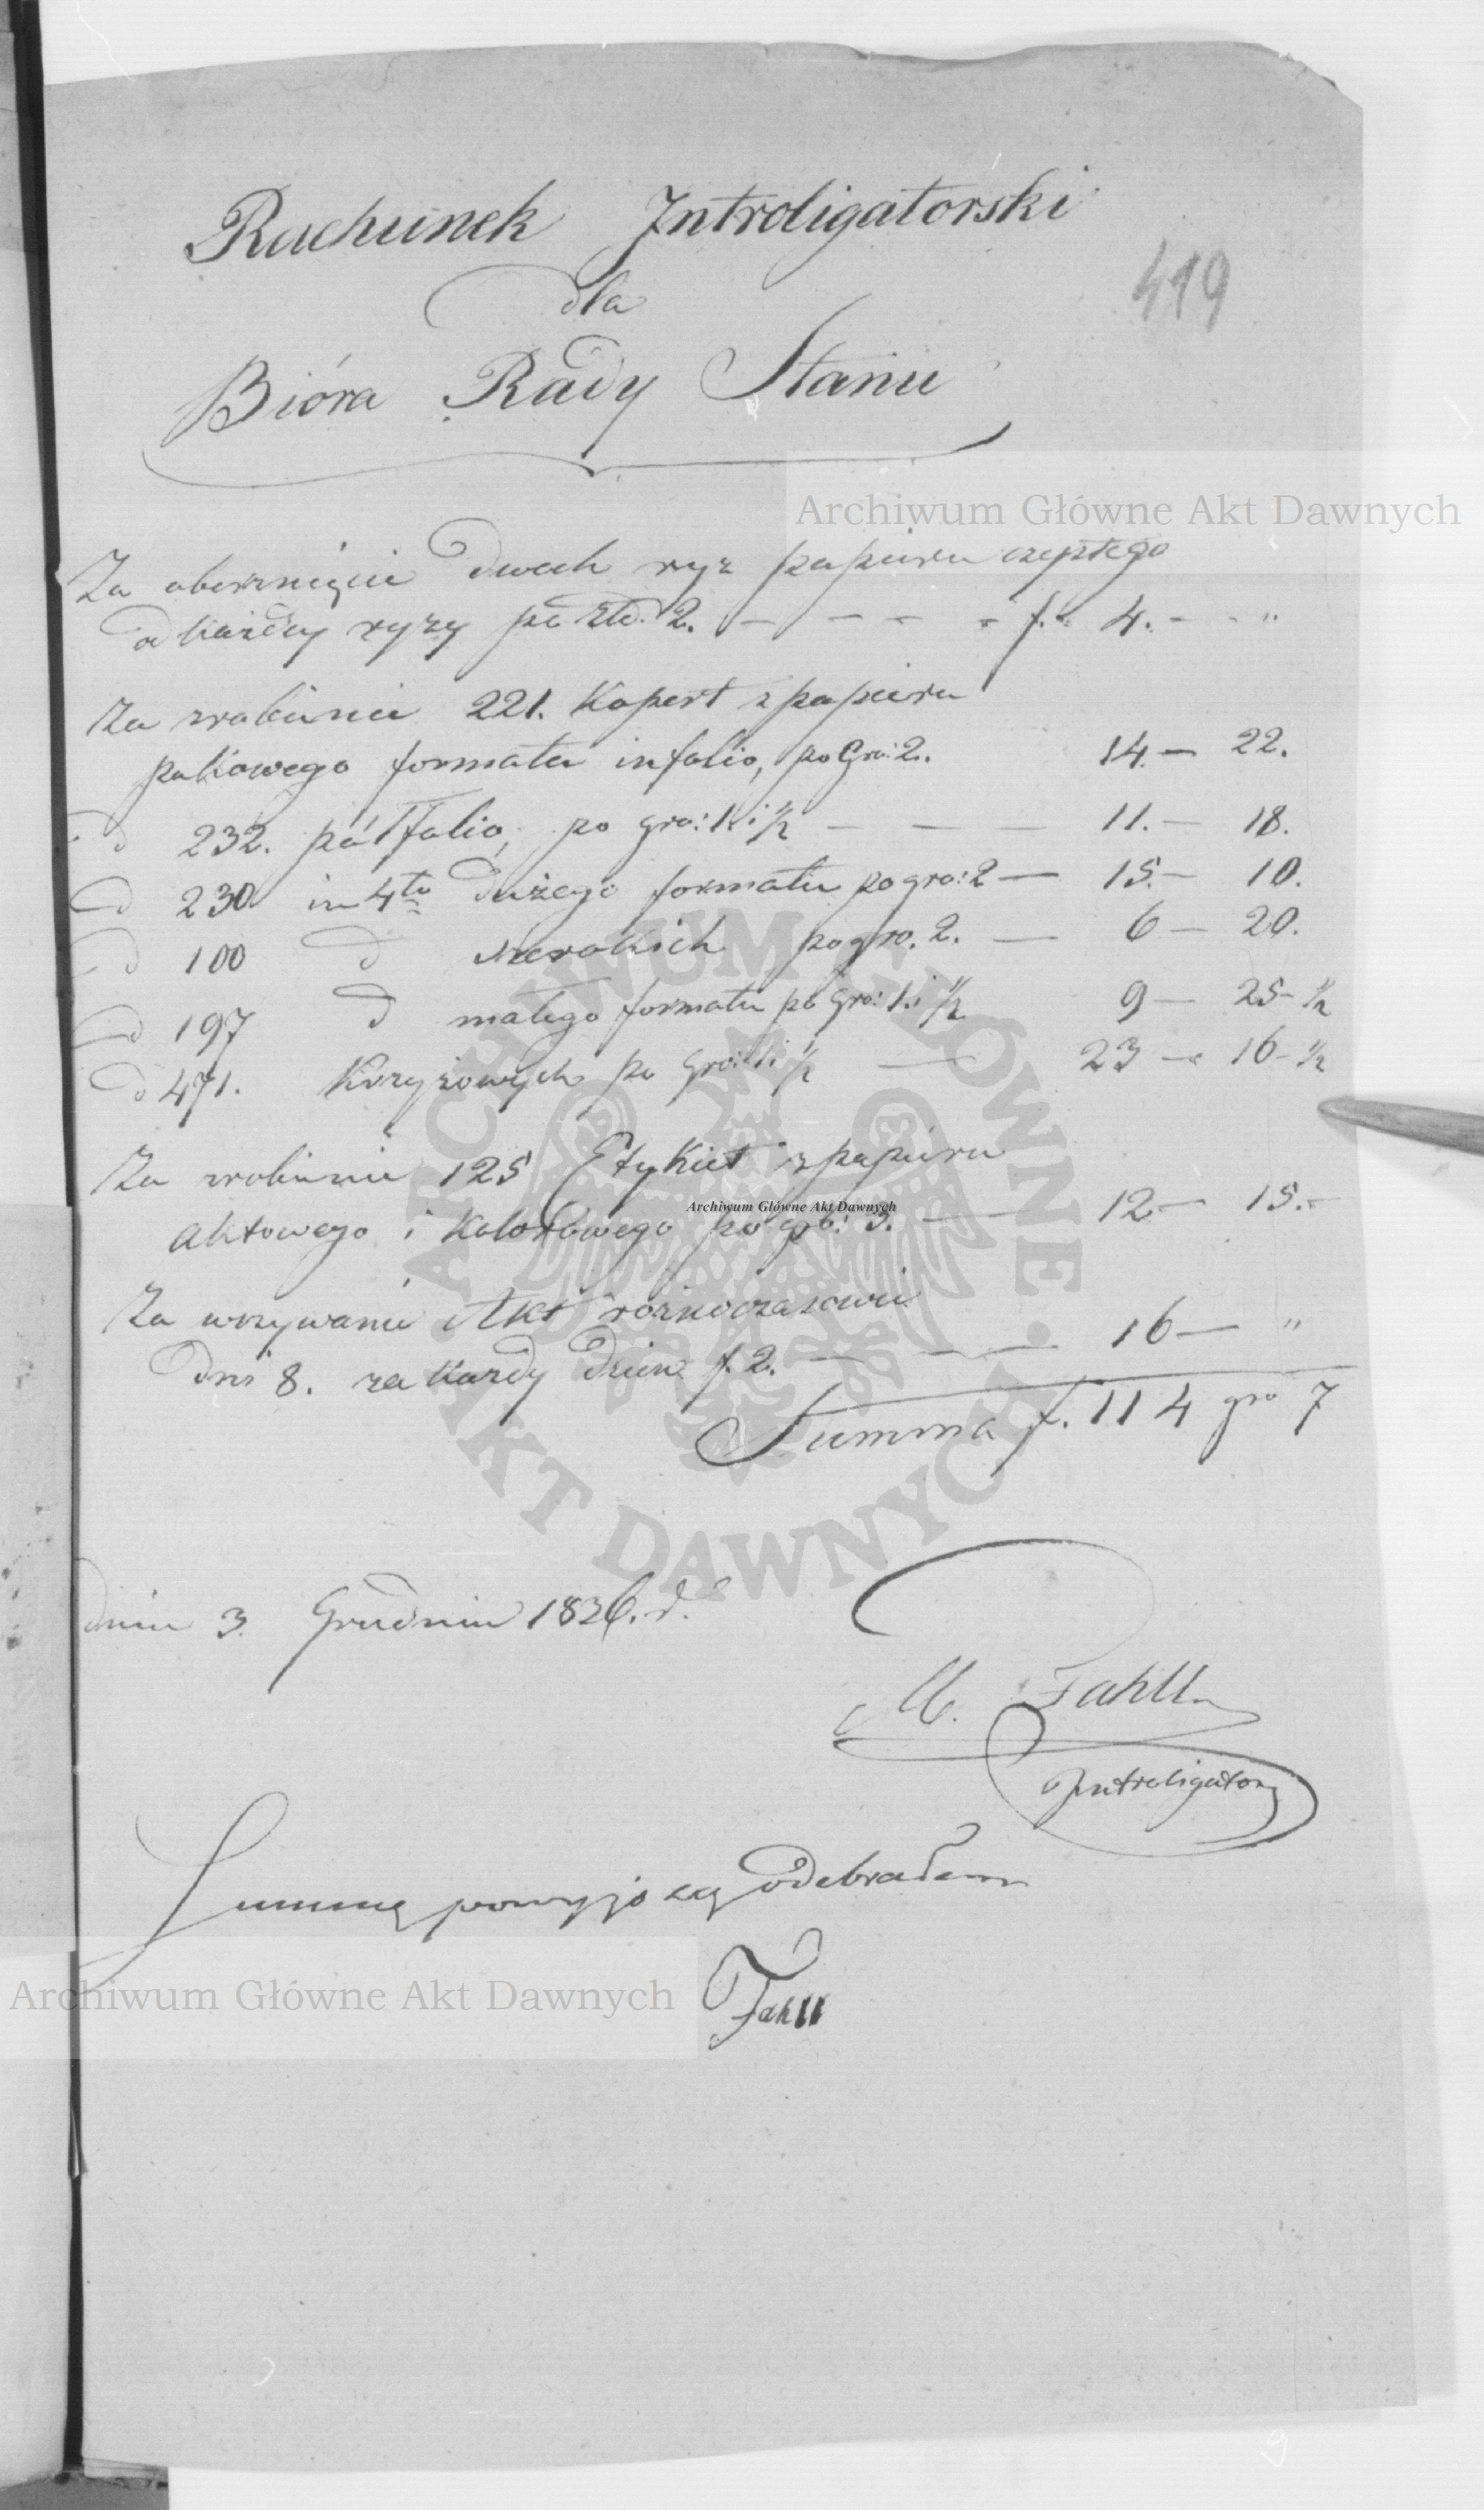 Rachunek Introligatorski
419
dla
Bióra Rady Stanu
Archiwum Główne Akt Dawnych
Za oberznięcie dwuch ryz papieru
od każdey ryzy po Złł. 2. — — — — f. 4. — — "
Za zrobienie 221. Kopert z papieru
pakowego formatu in folio, po Gro: 2. 14. — 22.
d 232. pół folio, po gro: 1. i ½ — — — 11. — 18.
d 230 in 4to dużego formatu po gro: 2 — 15. — 10.
d 100 d szerokich po gro. 2. — 6 — 20.
d 197 d małego formatu po Gro: 1. i ½ 9 — 25 - ½
d 471. Krzyżowych po Gro: 1. i ½ — 23 — 16 - ½
Za zrobienie 125 Etykiet z papieru
Archiwum Główne Akt Dawnych
aktowego i kolorowego po gro: 3. — 12 — 15. -
Za wszywanie Akt różnoczasowie
dni 8. za każdy dzień f. 2. — — — 16 — "
Summa f. 114 gro 7
ARCHIWUM GŁÓWNE • AKT DAWNYCH •
dnia 3. Grudnia 1836. r.
M. Fahll
Introligator
Summę powyższą odebrałem
Archiwum Główne Akt Dawnych
Fahll